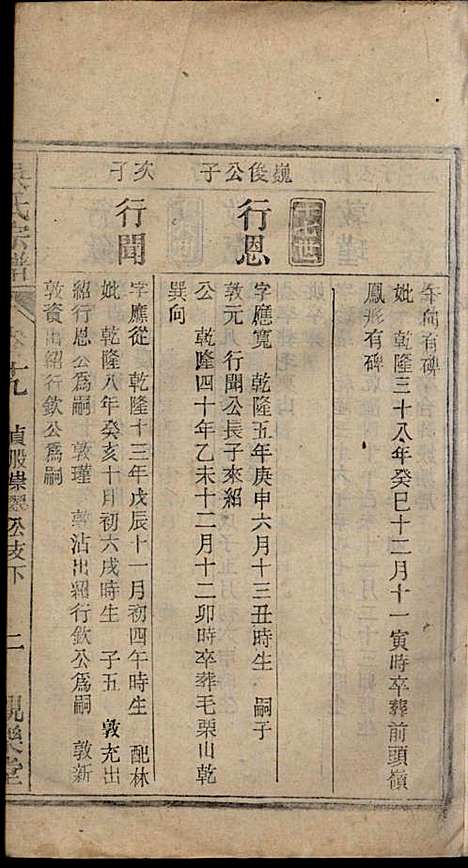 午向有碑
妣 乾隆三十八年癸巳十二月十一寅時卒葬前頭嶺
鳳形有碑
十七世
巍後公子
行恩
字應寬 乾隆五年庚申六月十三丑時生 嗣子
敦元行聞公長子來紹
公 乾隆四十年乙未十二月十二卯時卒葬毛栗山乾
巽向
次子
行聞
字應從 乾隆十三年戊辰十一月初四午時生 配林
妣 乾隆八年癸亥十月初六戌時生 子五 敦充出
紹行恩公爲嗣 敦瑾 敦沾出紹行欽公爲嗣 敦新
敦資出紹行欽公爲嗣
氏宗譜
卷十九 貞股崇 公支下 二 覞樂堂